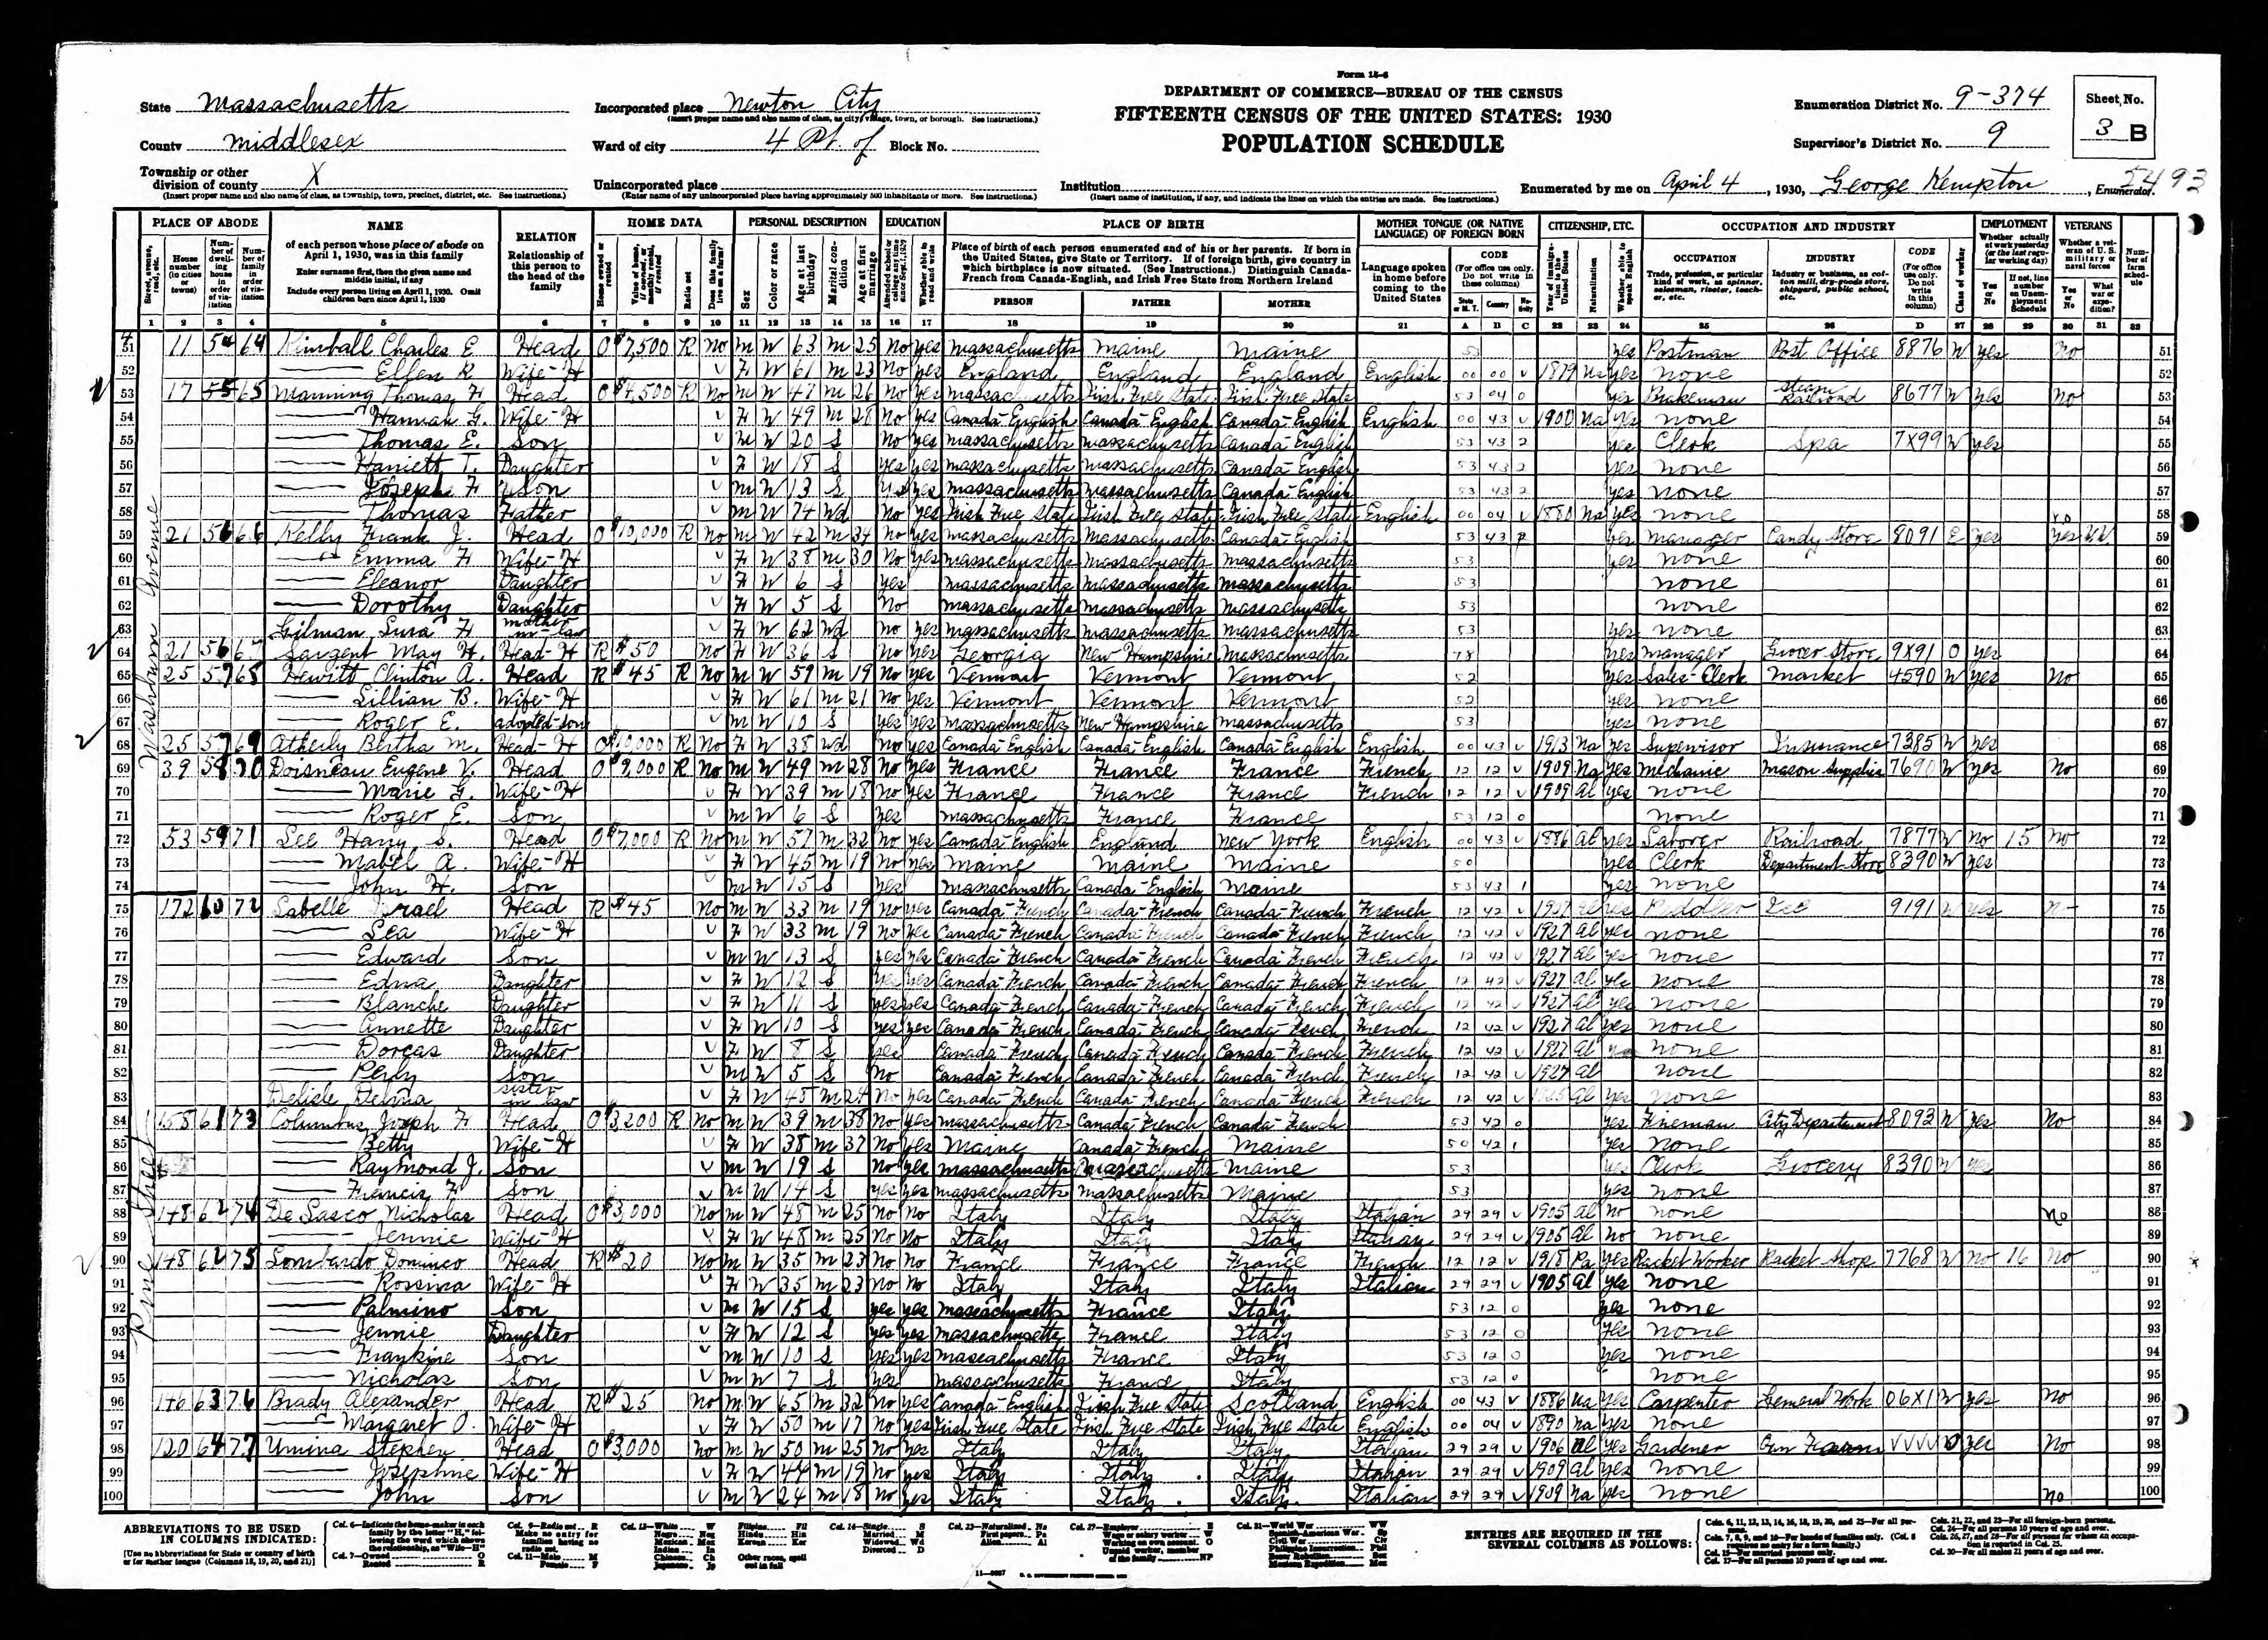 Form 15-6
State Massachusetts
Incorporated place Newton City
(Insert proper name and also name of class, as city, village, town, or borough. See instructions.)
DEPARTMENT OF COMMERCE—BUREAU OF THE CENSUS
Enumeration District No. 9-374
Sheet No.
3 B
County Middlesex
Ward of city 4 Pt. of Block No.
FIFTEENTH CENSUS OF THE UNITED STATES: 1930
Supervisor's District No. 9
POPULATION SCHEDULE
Township or other division of county X
(Insert proper name and also name of class, as township, town, precinct, district, etc. See instructions.)
Unincorporated place
(Enter name of any unincorporated place having approximately 500 inhabitants or more. See instructions.)
Institution
(Insert name of institution, if any, and indicate the lines on which the entries are made. See instructions.)
Enumerated by me on April 4, 1930, George Kempton, Enumerator.
PLACE OF ABODE NAME RELATION HOME DATA PERSONAL DESCRIPTION EDUCATION PLACE OF BIRTH MOTHER TONGUE (OR NATIVE LANGUAGE) OF FOREIGN BORN CITIZENSHIP, ETC. OCCUPATION AND INDUSTRY EMPLOYMENT VETERANS
of each person whose place of abode on April 1, 1930, was in this family
Enter surname first, then the given name and middle initial, if any
Include every person living on April 1, 1930. Omit children born since April 1, 1930
Relationship of this person to the head of the family
Place of birth of each person enumerated and of his or her parents. If born in the United States, give State or Territory. If of foreign birth, give country in which birthplace is now situated. (See Instructions.) Distinguish Canada-French from Canada-English, and Irish Free State from Northern Ireland
PERSON FATHER MOTHER
Language spoken in home before coming to the United States
CODE
OCCUPATION INDUSTRY CODE
1 2 3 4 5 6 7 8 9 10 11 12 13 14 15 16 17 18 19 20 21 A B C 22 23 24 25 26 D 27 28 29 30 31 32
Washburn Avenue
51 11 54 64 Kimball Charles E Head O $7,500 R No M W 63 M 25 No yes Massachusetts Maine Maine 53 yes Postman Post Office 8876 W yes No 51
52 Ellen R Wife-H V F W 61 M 23 No yes England England England English 00 00 V 1879 Na yes None 52
53 17 55 65 Manning Thomas F Head O $4,500 R No M W 47 M 26 No yes Massachusetts Irish Free State Irish Free State 53 04 0 yes Brakeman Steam Railroad 8677 W yes No 53
54 Hannah G. Wife-H V F W 49 M 28 No yes Canada-English Canada-English Canada-English English 00 43 V 1900 Na yes None 54
55 Thomas E. Son V M W 20 S No yes Massachusetts Massachusetts Canada-English 53 43 2 yes Clerk Spa 7X99 W yes 55
56 Harriett T. Daughter V F W 18 S yes yes Massachusetts Massachusetts Canada-English 53 43 2 yes None 56
57 Joseph F Son V M W 13 S yes yes Massachusetts Massachusetts Canada-English 53 43 2 yes None 57
58 Thomas Father V M W 74 Wd No yes Irish Free State Irish Free State Irish Free State English 00 04 V 1880 Na yes None 58
59 21 56 66 Kelly Frank J. Head O $10,000 R No M W 42 M 34 No yes Massachusetts Massachusetts Canada-English 53 43 2 yes Manager Candy Store 8091 E yes yes WW 59
60 Emma F Wife-H V F W 38 M 30 No yes Massachusetts Massachusetts Massachusetts 53 yes None 60
61 Eleanor Daughter V F W 6 S yes Massachusetts Massachusetts Massachusetts 53 None 61
62 Dorothy Daughter V F W 5 S No Massachusetts Massachusetts Massachusetts 53 None 62
63 Gilman Sura F Mother in-law V F W 62 Wd No yes Massachusetts Massachusetts Massachusetts 53 yes None 63
64 21 56 67 Sargent May H. Head-H R $50 No F W 36 S No yes Georgia New Hampshire Massachusetts 78 yes Manager Grocer Store 9X91 O yes 64
65 25 57 68 Hewitt Clinton A. Head R $45 R No M W 59 M 19 No yes Vermont Vermont Vermont 52 yes Sales-Clerk Market 4590 W yes No 65
66 Lillian B. Wife-H V F W 61 M 21 No yes Vermont Vermont Vermont 52 yes None 66
67 Roger E. adopted-son V M W 10 S yes yes Massachusetts New Hampshire Massachusetts 53 yes None 67
68 25 57 69 Atherly Bertha M. Head-H O $10,000 R No F W 38 Wd No yes Canada-English Canada-English Canada-English English 00 43 V 1913 Na yes Supervisor Insurance 7385 W yes 68
69 39 58 70 Doisneau Eugene V. Head O $9,000 R No M W 49 M 28 No yes France France France French 12 12 V 1909 Na yes Mechanic Mason Supplies 7690 W yes No 69
70 Marie G. Wife-H V F W 39 M 18 No yes France France France French 12 12 V 1909 Al yes None 70
71 Roger E. Son V M W 6 S yes Massachusetts France France 53 12 0 None 71
72 53 59 71 Lee Harry S. Head O $7,000 R No M W 57 M 32 No yes Canada-English England New York English 00 43 V 1886 Al yes Laborer Railroad 7877 W No 15 No 72
73 Mabel A. Wife-H V F W 45 M 19 No yes Maine Maine Maine 50 yes Clerk Department Store 8390 W yes 73
74 John H. Son V M W 15 S yes Massachusetts Canada-English Maine 53 43 1 yes None 74
Pine Street
75 172 60 72 Labelle Israel Head R $45 No M W 33 M 19 No yes Canada-French Canada-French Canada-French French 12 42 V 1927 Al yes Peddler Ice 9191 W yes No 75
76 Lea Wife-H V F W 33 M 19 No yes Canada-French Canada-French Canada-French French 12 42 V 1927 Al yes None 76
77 Edward Son V M W 13 S yes yes Canada-French Canada-French Canada-French French 12 42 V 1927 Al yes None 77
78 Edna Daughter V F W 12 S yes yes Canada-French Canada-French Canada-French French 12 42 V 1927 Al yes None 78
79 Blanche Daughter V F W 11 S yes yes Canada-French Canada-French Canada-French French 12 42 V 1927 Al yes None 79
80 Annette Daughter V F W 10 S yes yes Canada-French Canada-French Canada-French French 12 42 V 1927 Al yes None 80
81 Dorcas Daughter V F W 8 S yes Canada-French Canada-French Canada-French French 12 42 V 1927 Al None 81
82 Perly Son V M W 5 S No Canada-French Canada-French Canada-French French 12 42 V 1927 Al None 82
83 Delisle Delina Sister in-law V F W 48 M 24 No yes Canada-French Canada-French Canada-French French 12 42 V Al yes None 83
84 158 61 73 Columbus Joseph F Head O $3200 R No M W 39 M 38 No yes Massachusetts Canada-French Canada-French 53 42 0 yes Fireman City Department 8093 W yes No 84
85 Betty Wife-H V F W 38 M 37 No yes Maine Canada-French Maine 50 42 1 yes None 85
86 Raymond J. Son V M W 19 S No yes Massachusetts Massachusetts Maine 53 yes Clerk Grocery 8390 W yes 86
87 Francis F Son V M W 14 S yes yes Massachusetts Massachusetts Maine 53 yes None 87
88 148 62 74 De Sasco Nicholas Head O $3,000 No M W 48 M 25 No No Italy Italy Italy Italian 29 29 V 1905 Al No None No 88
89 Jennie Wife-H V F W 48 M 25 No No Italy Italy Italy Italian 29 29 V 1905 Al No None 89
90 148 62 75 Lombardo Dominico Head R $20 No M W 35 M 23 No No France France France French 12 12 V 1918 Pa yes Racket Worker Racket Shop 7768 W No 16 No 90
91 Rossina Wife-H V F W 35 M 23 No No Italy Italy Italy Italian 29 29 V 1905 Al yes None 91
92 Palmino Son V M W 15 S yes yes Massachusetts France Italy 53 12 0 yes None 92
93 Jennie Daughter V F W 12 S yes yes Massachusetts France Italy 53 12 0 yes None 93
94 Frankine Son V M W 10 S yes yes Massachusetts France Italy 53 12 0 yes None 94
95 Nicholas Son V M W 7 S yes Massachusetts France Italy 53 12 0 None 95
96 146 63 76 Brady Alexander Head R $25 No M W 65 M 32 No yes Canada-English Irish Free State Scotland English 00 43 V 1886 Na yes Carpenter General Work 06X1 W yes No 96
97 Margaret O. Wife-H V F W 50 M 17 No yes Irish Free State Irish Free State Irish Free State English 00 04 V 1890 Na yes None 97
98 120 64 77 Umina Stephen Head O $3,000 No M W 50 M 25 No yes Italy Italy Italy Italian 29 29 V 1906 Al yes Gardener Own Farm VVVV O yes No 98
99 Josephine Wife-H V F W 44 M 19 No yes Italy Italy Italy Italian 29 29 V 1909 Al yes None 99
100 John Son V M W 24 M 18 No yes Italy Italy Italy Italian 29 29 V 1909 Na yes None No 100
ABBREVIATIONS TO BE USED IN COLUMNS INDICATED:
[Use no abbreviations for State or country of birth or for mother tongue (Columns 18, 19, 20, and 21)]
ENTRIES ARE REQUIRED IN THE SEVERAL COLUMNS AS FOLLOWS: